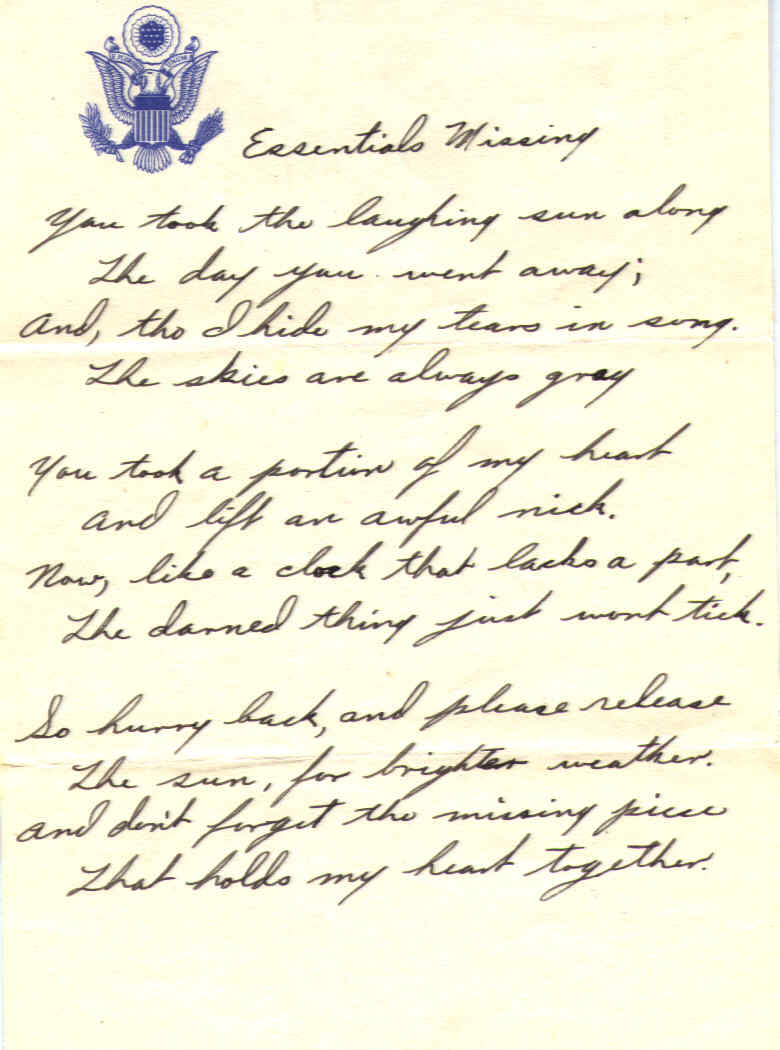 Essentials Missing
You took the laughing sun along
The day you went away;
And, tho I hide my tears in song.
The skies are always gray
You took a portion of my heart
And left an awful nick.
Now, like a clock that lacks a part,
The darned thing just wont tick.
So hurry back, and please release
The sun, for brighter weather.
And don't forget the missing piece
That holds my heart together.